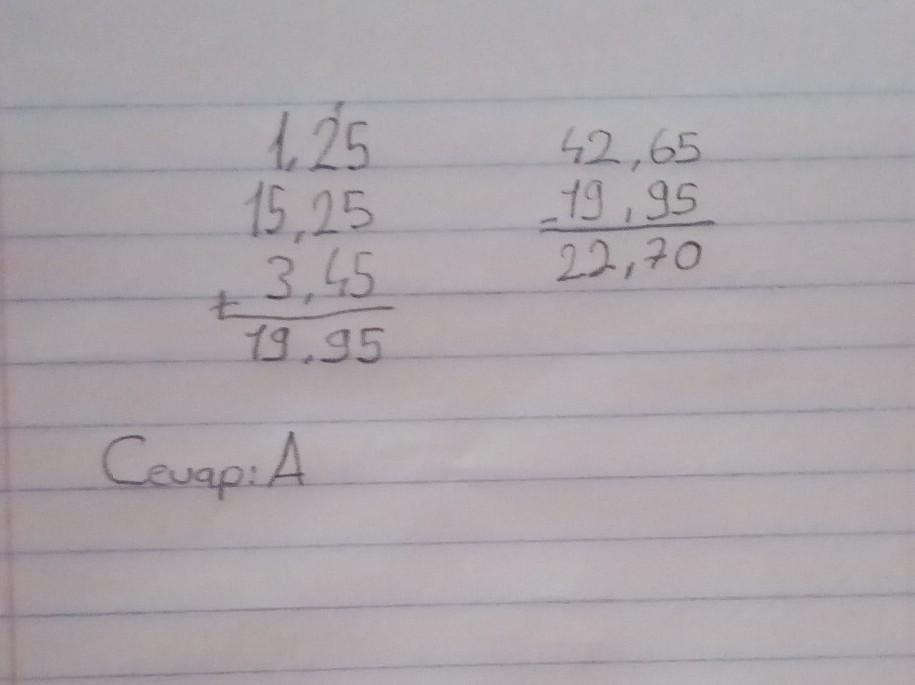 1
1,25
15,25
+ 3,45
19,95
42,65
-19,95
22,70
Cevap: A